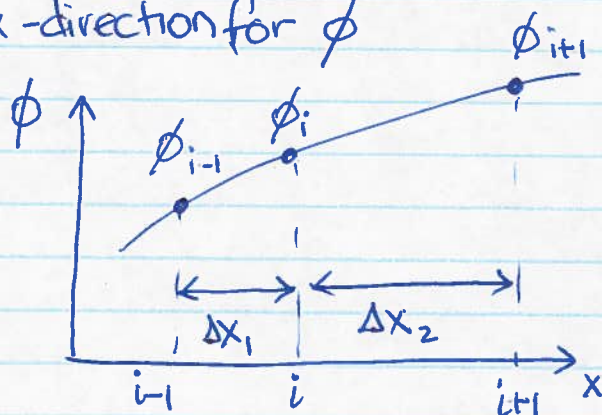 x-direction for ϕ
ϕ
ϕᵢ₋₁
ϕᵢ
ϕᵢ₊₁
Δx₁
Δx₂
i-1
i
i+1
x